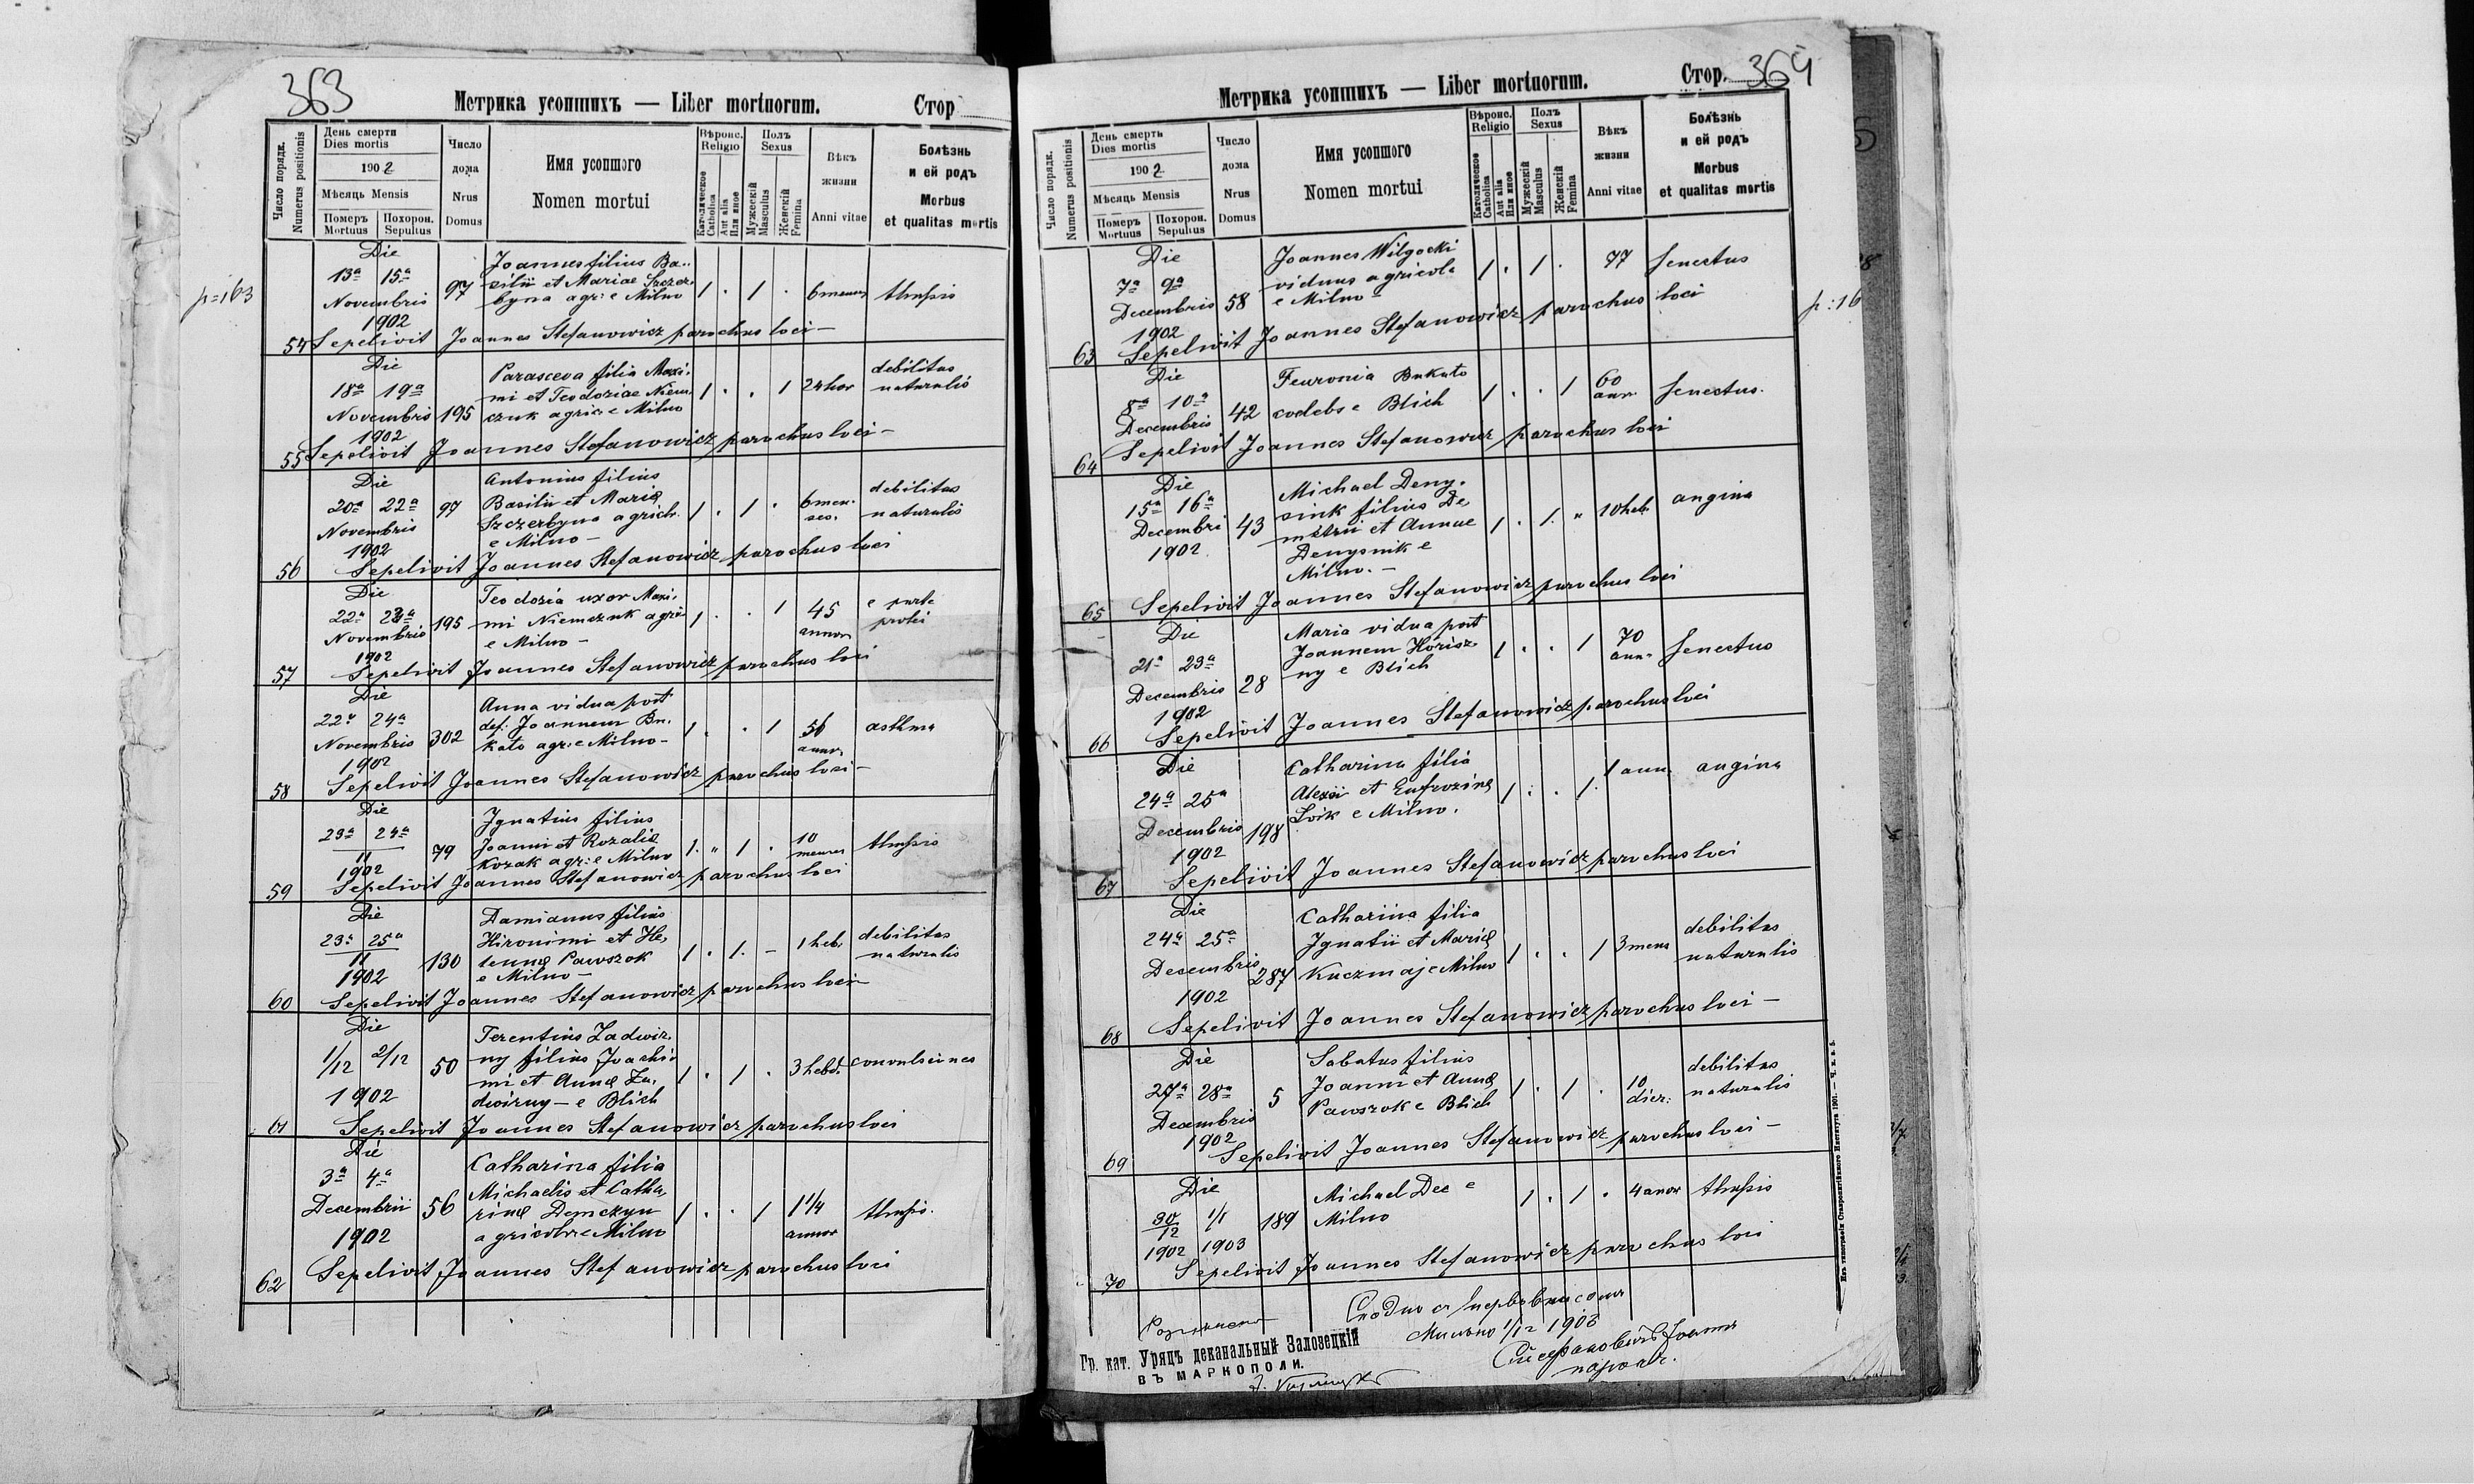 363
Метрика усопшихъ — Liber mortuorum.
Стор
Число порядк.
Numerus positionis
День смерти
Dies mortis
1902
Мѣсяць Mensis
Померъ Mortuus
Похорон. Sepultus
Число дома
Nrus Domus
Имя усопшого
Nomen mortui
Вѣроис. Religio
Католическое Catholica
Aut alia Или иное
Полъ Sexus
Мужескій Masculus
Женскій Femina
Вѣкъ жизни
Anni vitae
Болѣзнь и ей родъ
Morbus et qualitas mortis
p=163
Die
13ª 15ª
Novembris
1902
97
Joannes filius Ba-
silii et Mariae Szczer-
byna agr: e Milno
1 . 1 .
6 menses
thupis
54 Sepelivit Joannes Stefanowicz parochus loci —
Die
18ª 19ª
Novembris
1902
195
Parasceva filia Maxi-
mi et Teodoziae Niem-
czuk agric e Milno
1 . . 1
24 hor
debilitas
naturalis
55 Sepelivit Joannes Stefanowicz parochus loci —
Die
20ª 22ª
Novembris
1902
97
Antonius filius
Basilii et Mariæ
Szczerbyna agric.
e Milno —
1 . 1 .
6 men-
ses.
debilitas
naturalis
56 Sepelivit Joannes Stefanowicz parochus loci
Die
22ª 23ª
Novembris
1902
195
Teodozia uxor Maxi-
mi Niemczuk agric
e Milno —
1 . . 1
45
annor
e parte
57 Sepelivit Joannes Stefanowicz parochus loci
Die
22ª 24ª
Novembris
1902
302
Anna vidua post
def. Joannem Bu-
kato agr: e Milno —
1 . . 1
56
annor.
asthma
58 Sepelivit Joannes Stefanowicz parochus loci —
Die
23ª 24ª
11
1902
79
Ignatius filius
Joanni et Rozaliæ
Kozak agr: e Milno
1 . " 1 .
10
menses
thupis
59 Sepelivit Joannes Stefanowicz parochus loci
Die
23ª 25ª
11
1902
130
Damianus filius
Hironimi et He-
lennæ Pawszok
e Milno —
1 . 1. —
1 heb.
debilitas
naturalis
60 Sepelivit Joannes Stefanowicz parochus loci
Die
1/12 2/12
1902
50
Terentius Zadwir-
ny filius Joachi-
mi et Annæ Za-
dwirny — e Blich
1 . 1 .
3 hebd.
convulsiones
61 Sepelivit Joannes Stefanowicz parochus loci
Die
3ª 4ª
Decembrii
1902
56
Catharina filia
Michaelis et Catha-
rinæ Demczyn
agricolæ e Milno
1 . . 1
1 1/4
annor
thupis.
62 Sepelivit Joannes Stefanowicz parochus loci
Метрика усопшихъ — Liber mortuorum.
Стор. 364
Число порядк.
Numerus positionis
День смерти
Dies mortis
1902
Мѣсяць Mensis
Померъ Mortuus
Похорон. Sepultus
Число дома
Nrus Domus
Имя усопшого
Nomen mortui
Вѣроис. Religio
Католическое Catholica
Aut alia Или иное
Полъ Sexus
Мужескій Masculus
Женскій Femina
Вѣкъ жизни
Anni vitae
Болѣзнь и ей родъ
Morbus et qualitas mortis
Die
7ª 9ª
Decembris
1902
58
Joannes Wilgocki
viduus agricola
e Milno —
1 . 1 .
77
Senectus
p: 16
63 Sepelivit Joannes Stefanowicz parochus loci
Die
8ª 10ª
Decembris
42
Feuronia Bukato
coelebs e Blich
1 . . 1
60
ann.
Senectus.
64 Sepelivit Joannes Stefanowicz parochus loci
Die
15ª 16ª
Decembri
1902
43
Michael Deny-
siuk filius De-
metrii et Annae
Denysnik e
Milno. —
1 . 1. "
10 heb.
angina
65 Sepelivit Joannes Stefanowicz parochus loci
Die
21ª 23ª
Decembris
1902
28
Maria vidua post
Joannem Horisz-
ny e Blich
1 . . 1
70
ann.
Senectus
66 Sepelivit Joannes Stefanowicz parochus loci
Die
24ª 25ª
Decembris
1902
198
Catharina filia
Alexii et Eufrozinæ
Łoik e Milno.
1 . . 1.
1 ann.
angina
67 Sepelivit Joannes Stefanowicz parochus loci
Die
24ª 25ª
Decembris
1902
287
Catharina filia
Ignatii et Mariæ
Kuczmaj e Milno
1 . . 1
3 mens
debilitas
naturalis
68 Sepelivit Joannes Stefanowicz parochus loci —
Die
27ª 28ª
Decembris
1902
5
Sabatus filius
Joanni et Annæ
Pawszok e Blich
1 . 1 .
10
dier.
debilitas
naturalis
69 Sepelivit Joannes Stefanowicz parochus loci —
Die
30/12 1/1
1902 1903
189
Michael Dec e
Milno
1 . 1 .
4 annor
thupis
70 Sepelivit Joannes Stefanowicz parochus loci
Мильно 1/12 1903
Стефановичъ Іоаннъ
парох.
Гр. кат. Урядъ деканальный Залозецкій
ВЪ МАРКОПОЛИ.
Изъ типографіи Ставропигійского Института 1901.